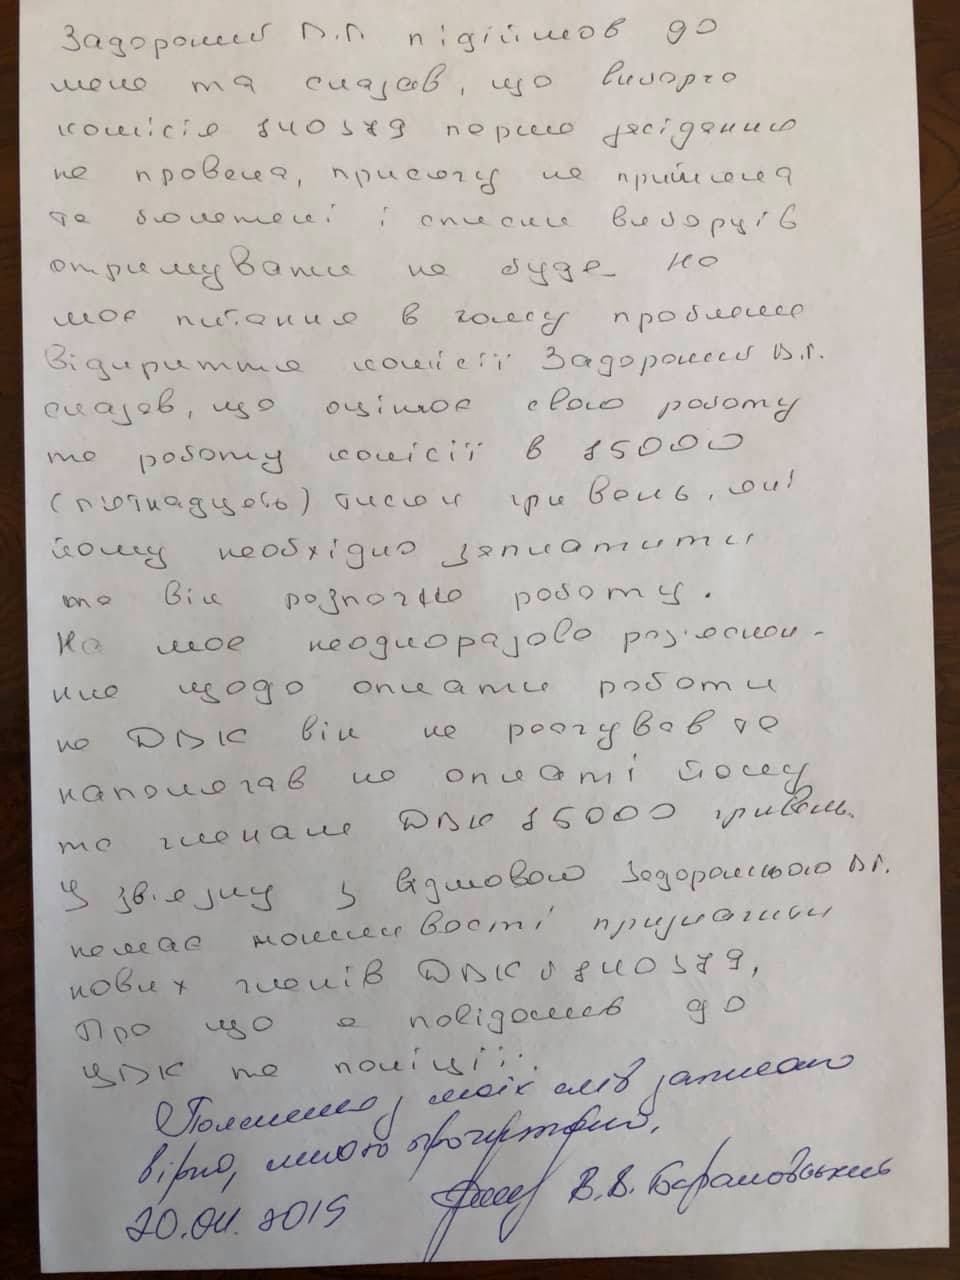 Задорожній В.Г. підійшов до
мене та сказав, що виборча
комісія 140379 перше засідання
не провела, присягу не прийняла
та бюлетені і списки виборців
отримувати не буде. На
моє питання в чому проблема
відкриття комісії Задорожній В.Г.
сказав, що оцінює свою роботу
та роботу комісії в 15000
(п'ятнадцять) тисяч гривень, які
йому необхідно заплатити
та він розпочне роботу.
На моє неодноразове роз'яснен-
ня щодо оплати роботи
на ДВК він не реагував та
наполягав на оплаті йому
та членам ДВК 15000 гривень.
У зв'язку з відмовою Задорожнього В.Г.
немає можливості призначити
нових членів ДВК 140379,
Про що я повідомив до
ЦВК та поліції.
Пояснення з моїх слів записано
вірно, мною прочитано.
20.04.2019 В.В. Барановський